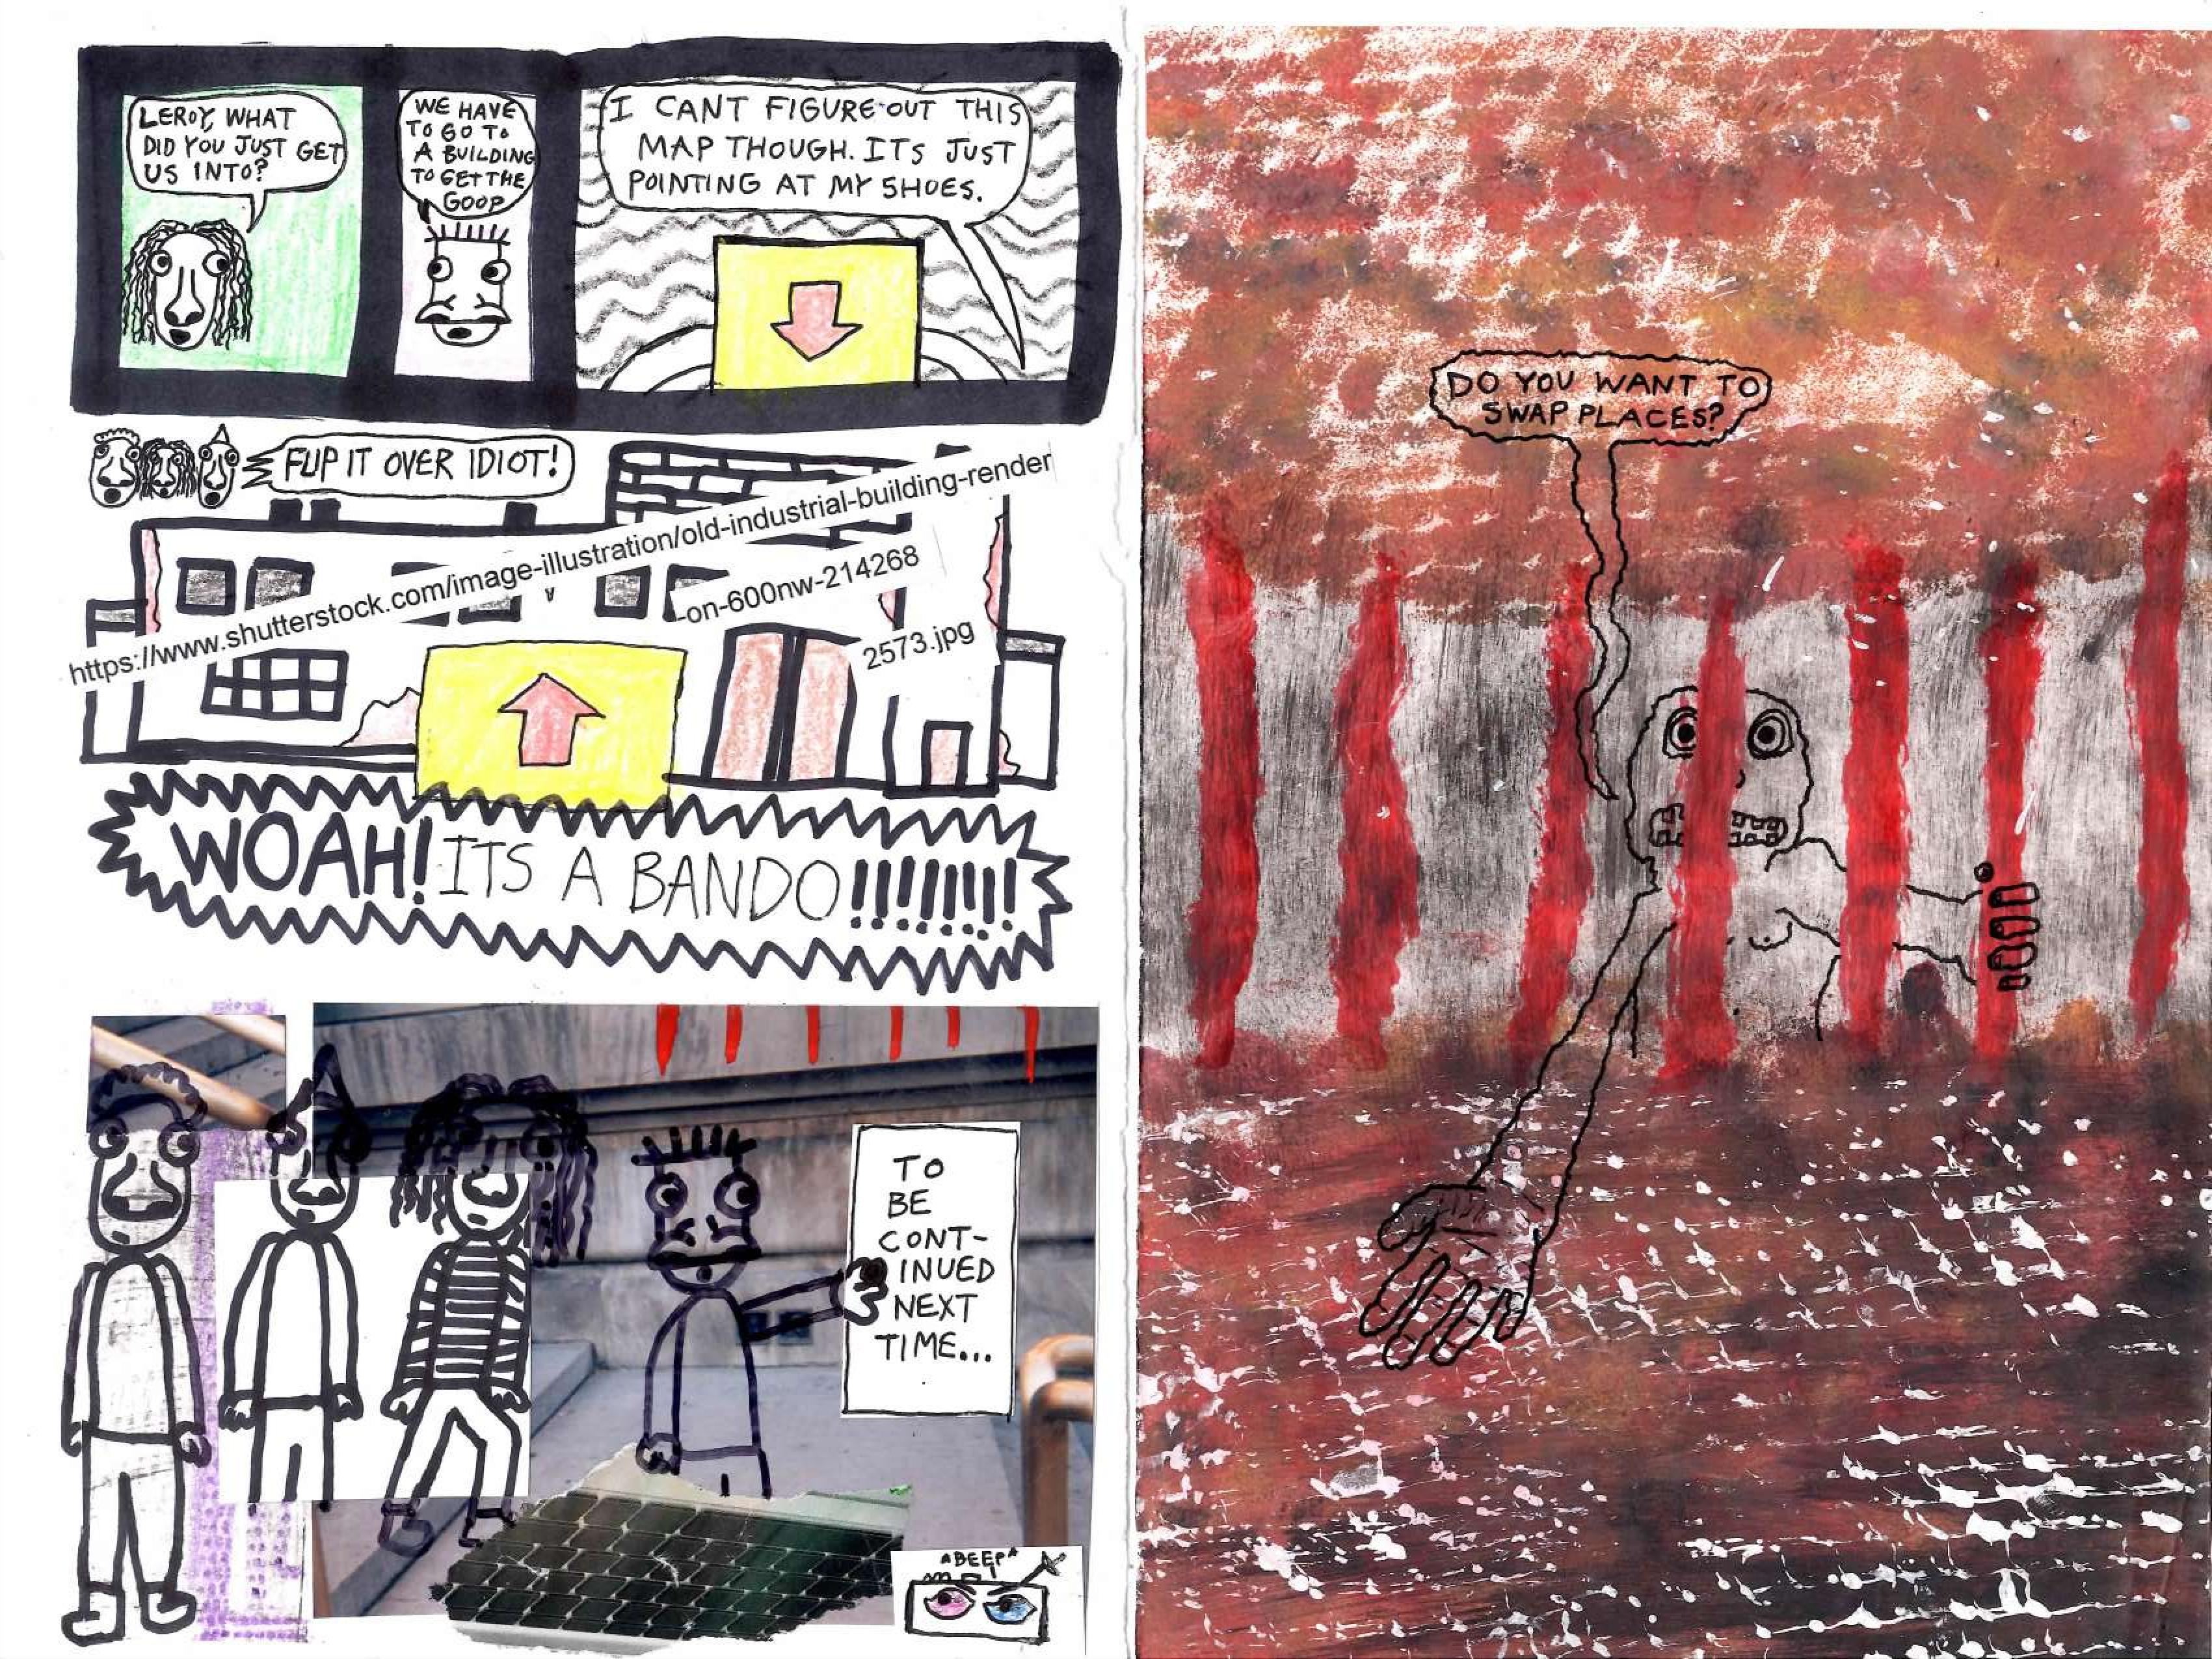 LEROY, WHAT
DID YOU JUST GET
US INTO?
WE HAVE
TO GO TO
A BUILDING
TO GET THE
GOOP
I CANT FIGURE OUT THIS
MAP THOUGH. ITS JUST
POINTING AT MY SHOES.
FLIP IT OVER IDIOT!
https://www.shutterstock.com/image-illustration/old-industrial-building-render
-on-600nw-214268
2573.jpg
WOAH! ITS A BANDO!!!!!!!!
TO
BE
CONT-
INUED
NEXT
TIME...
*BEEP*
DO YOU WANT TO
SWAP PLACES?